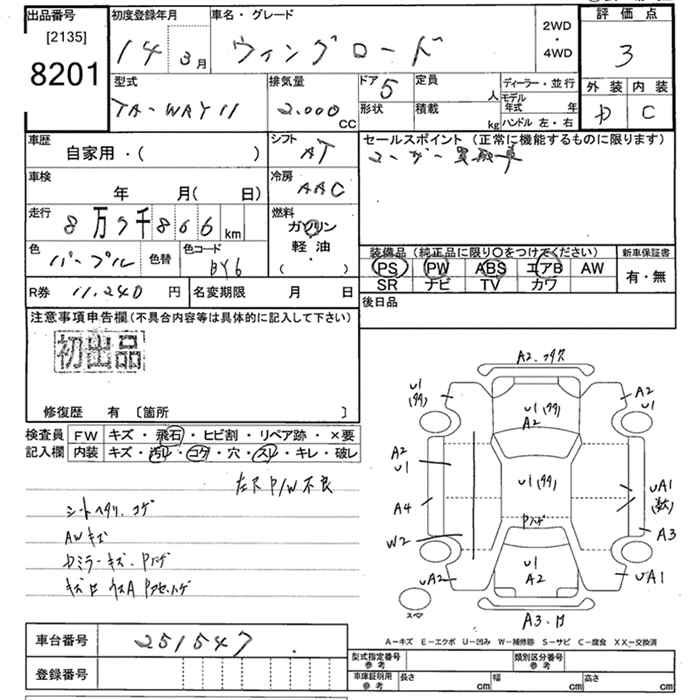 出品番号 初度登録年月 車名・グレード 2WD 評価点
[2135] 14年 3月 ウィングロード ・ 3
8201 4WD
外装 内装
型式 排気量 ドア 5 定員 人 ディーラー・並行
TA-WAY11 2.000 CC 形状 積載 kg モデル年式 年 D C
ハンドル 左・右
車歴 シフト セールスポイント (正常に機能するものに限ります)
自家用・( ) AT ユーザー買取車
車検 冷房
年 月( 日) AAC
走行 燃料
8万7千866km ガソリン
軽油・
( )
色 パープル 色替 色コード BY6
装備品(純正品に限り〇をつけてください) 新車保証書
PS PW ABS エアB AW 有・無
SR ナビ TV カワ
R券 11.240 円 名変期限 月 日
後日品
注意事項申告欄(不具合内容等は具体的に記入して下さい)
初出品
修復歴 有 〔箇所 〕
検査員 FW キズ・飛石・ヒビ割・リペア跡・×要
記入欄 内装 キズ・汚レ・コゲ・穴・スレ・キレ・破レ
左F P/W不良
シートヘタリ.コゲ
AWキズ
Dミラーキズ・Pハゲ
A2.
U1 A2
U1 A2 U1
A2
A2
U1 U1
A4 UA1
Pハゲ
W2 A3
U1
UA2 A2 UA1
スペア A3.
A-キズ E-エクボ U-凹み W-補修跡 S-サビ C-腐食 XX-交換済
車台番号 251547
登録番号
型式指定番号 参考 類別区分番号 参考
車庫証明用 参考 長さ cm 幅 cm 高さ cm